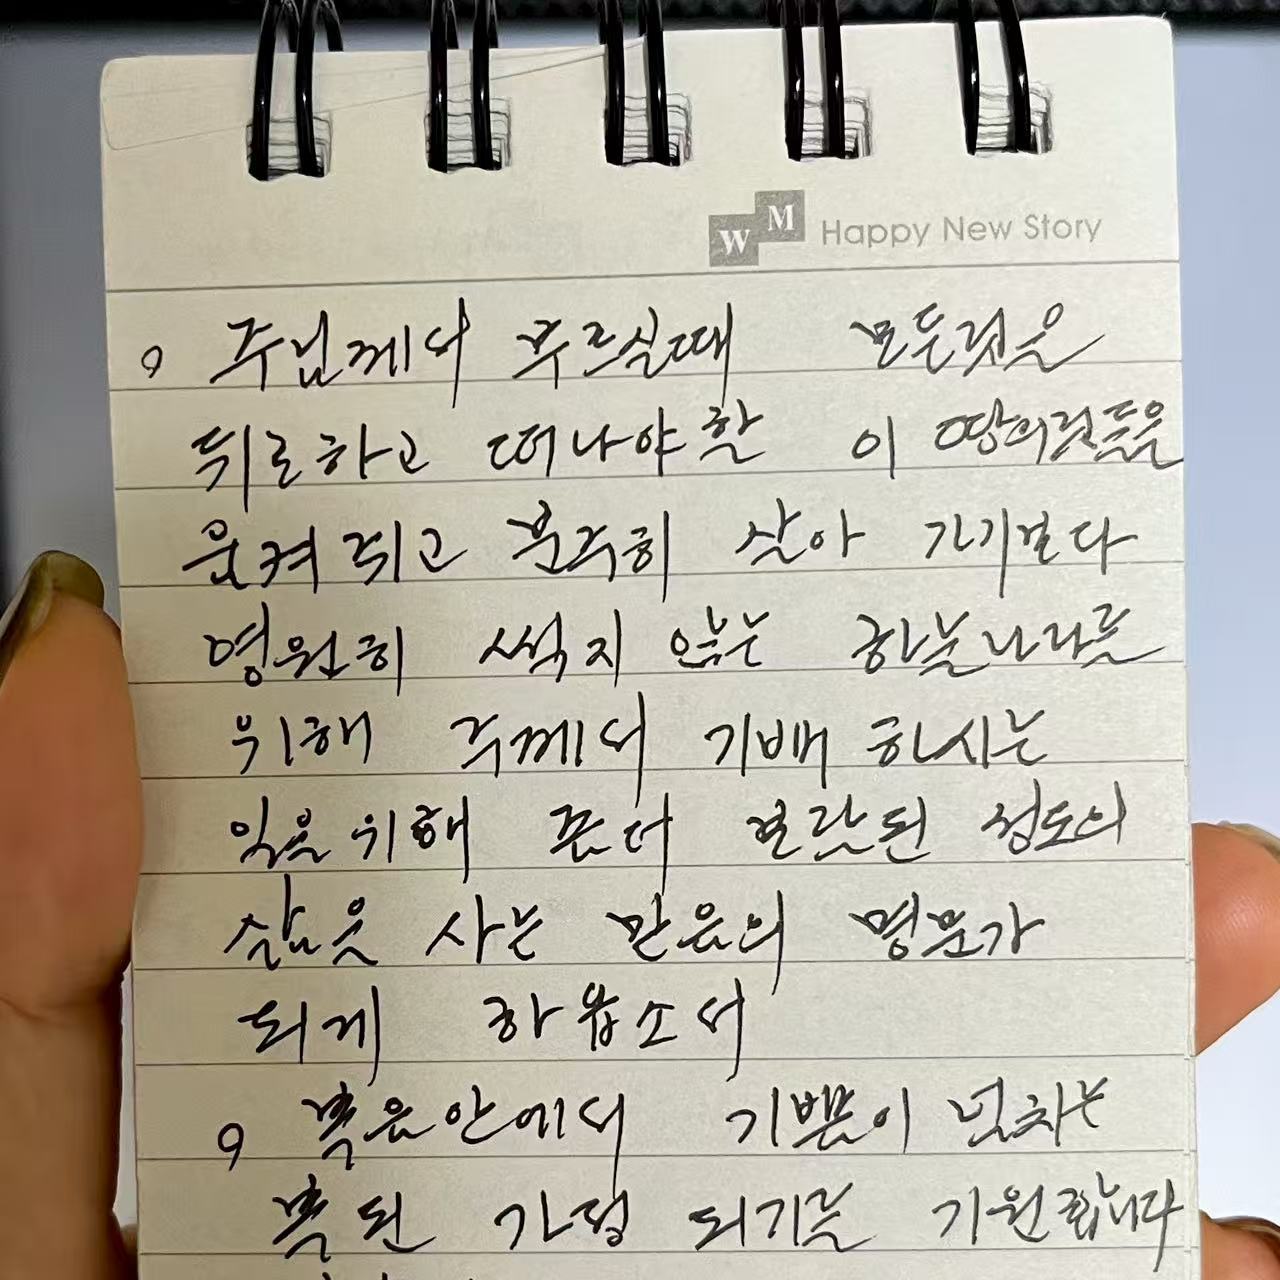 WM Happy New Story
주님께서 부르실때 모든것은
뒤로하고 떠나야할 이 땅의것들을
움켜쥐고 분주히 살아 가기보다
영원히 썩지 않는 하늘나라를
위해 주께서 기뻐 하시는
일을위해 좀더 보람된 성도의
삶을 사는 믿음의 명문가
되게 하옵소서
복음안에서 기쁨이 넘치는
복된 가정 되기를 기원합니다